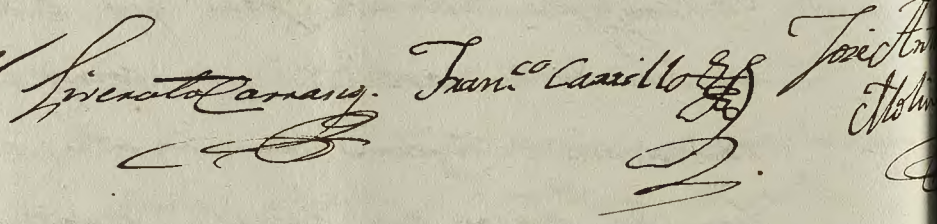 Liverato Carranz.
Fran.co Carrillo
José Ant
Molin